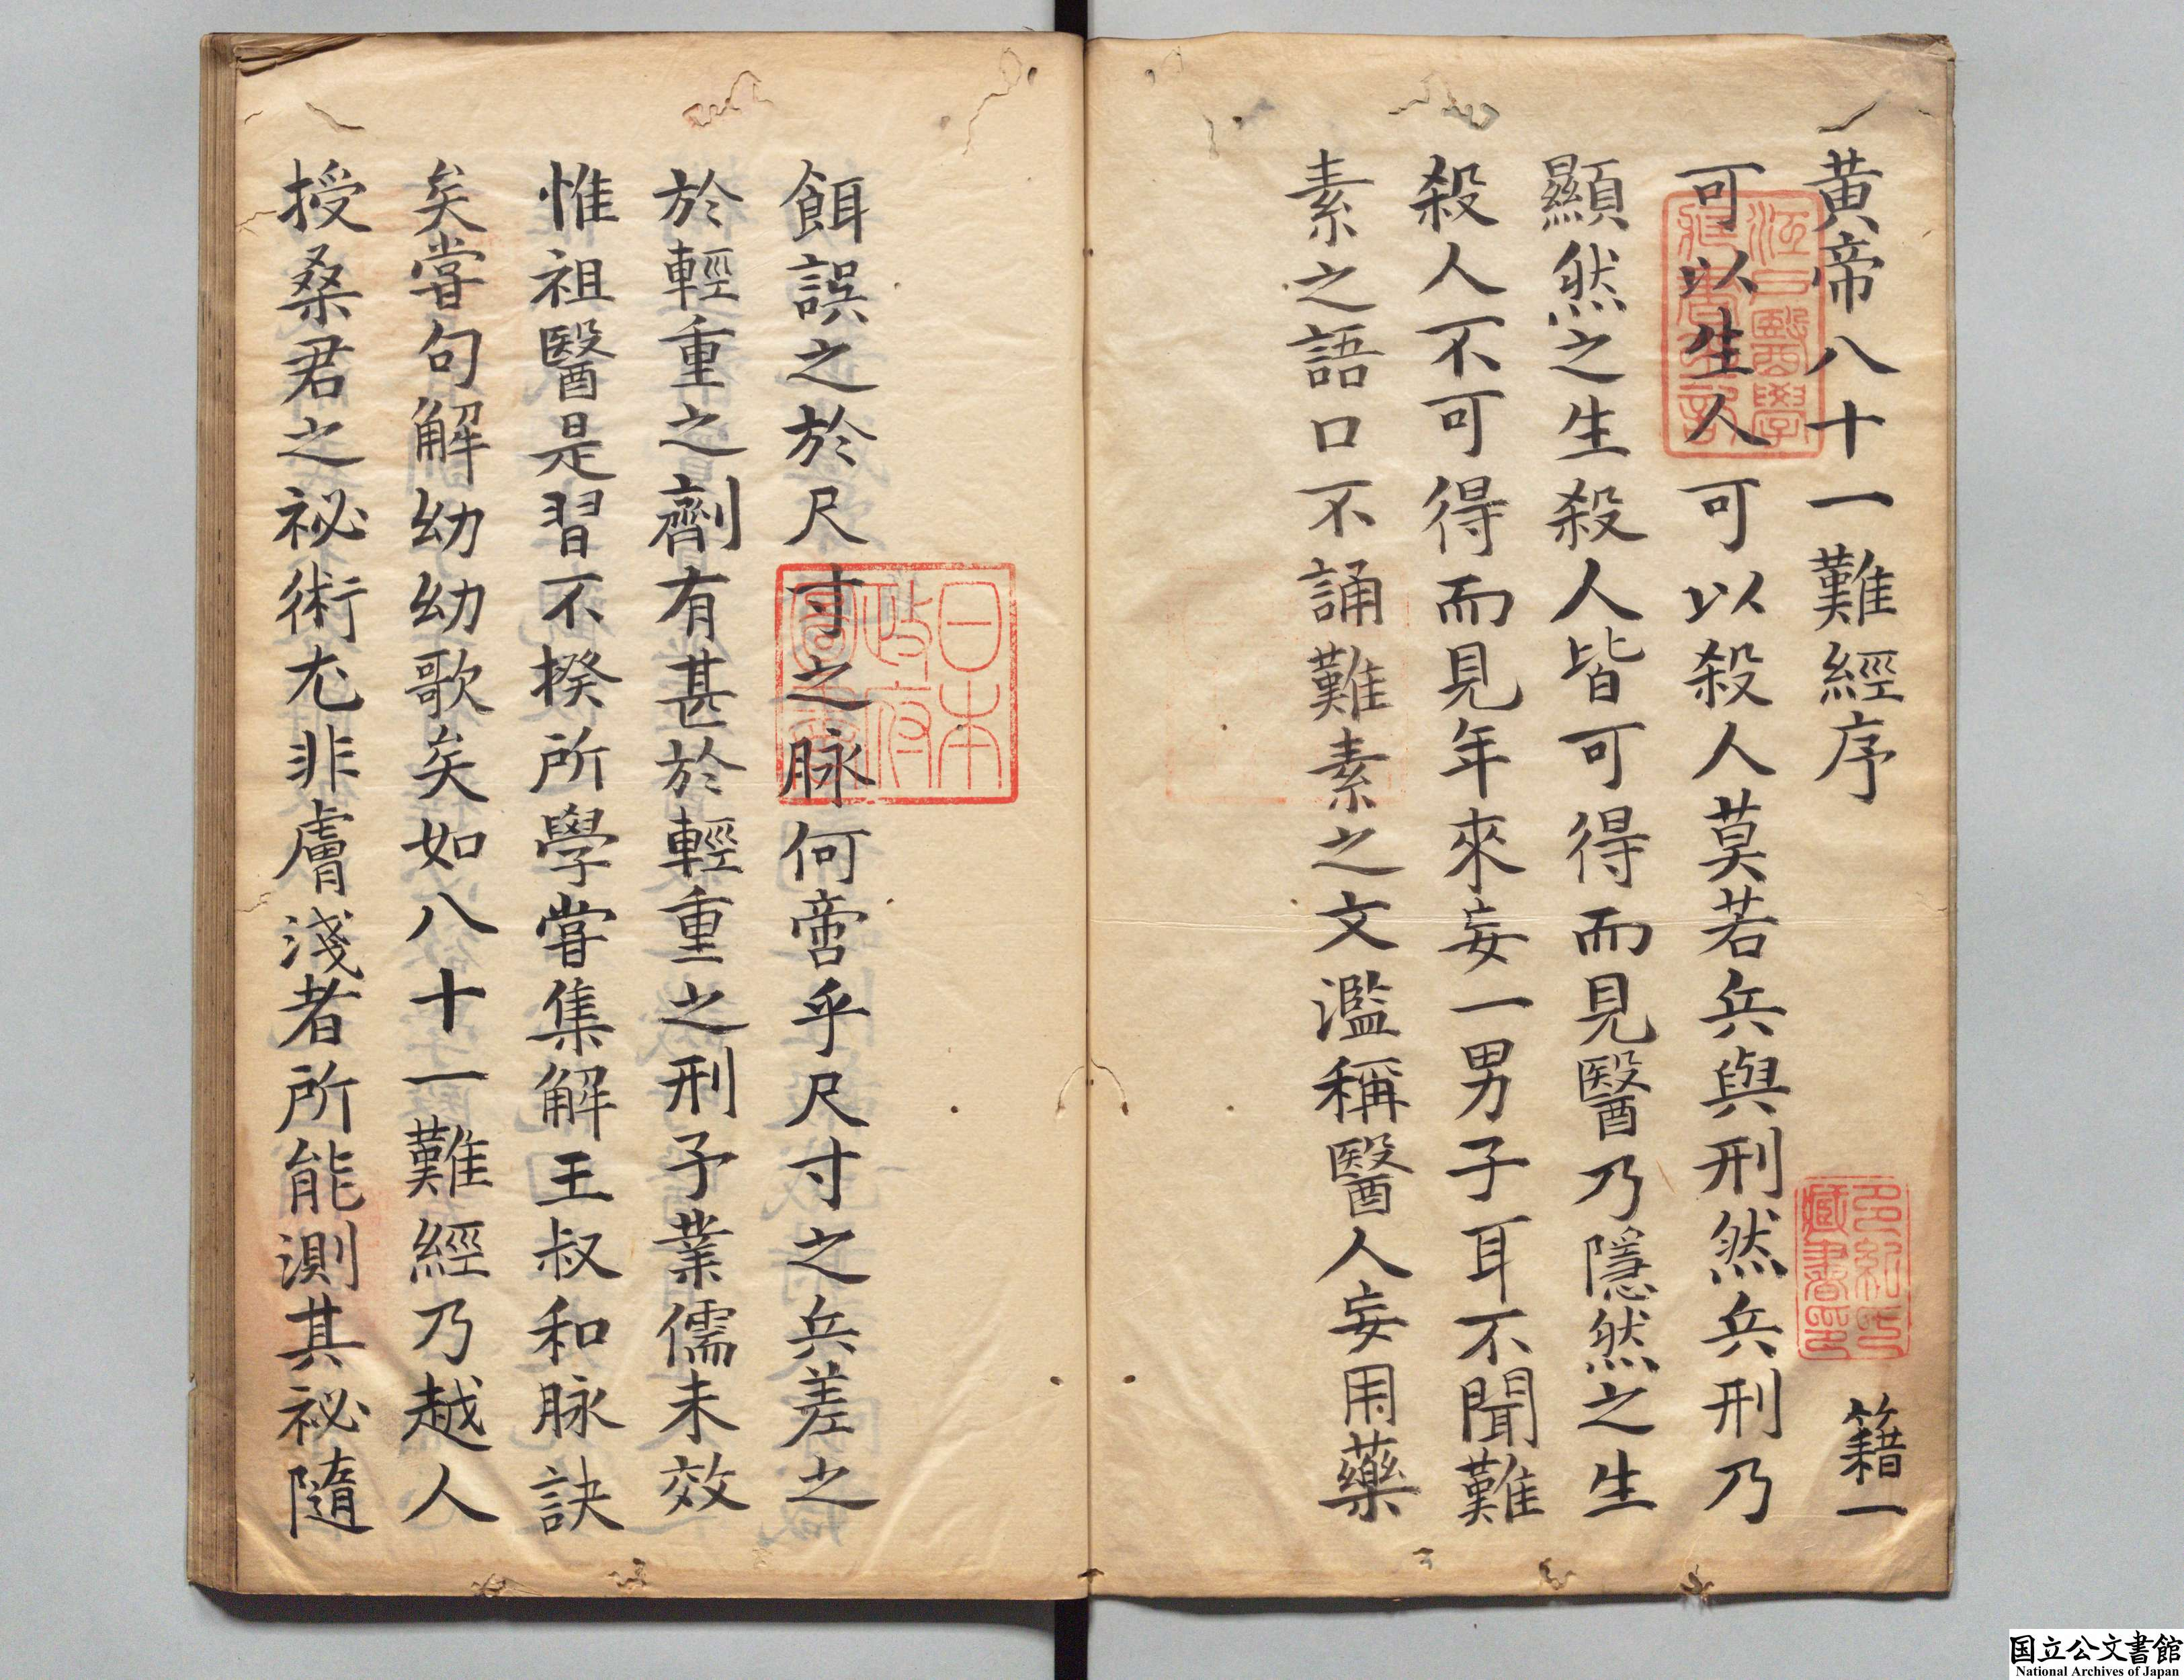 黄帝八十一難經序
籍一
可以生人可以殺人莫若兵與刑然兵刑乃
顯然之生殺人皆可得而見醫乃隱然之生
殺人不可得而見年來妄一男子耳不聞難
素之語口不誦難素之文濫稱醫人妄用藥
餌誤之於尺寸之脉何啻乎尺寸之兵差之
於輕重之劑有甚於輕重之刑予業儒未效
惟祖醫是習不揆所學嘗集解王叔和脉訣
矣嘗句解幼幼歌矣如八十一難經乃越人
授桑君之祕術尤非膚淺者所能測其祕隨
江戸醫學
藏書之記
多紀氏
藏書印
日本
政府
圖書
国立公文書館
National Archives of Japan